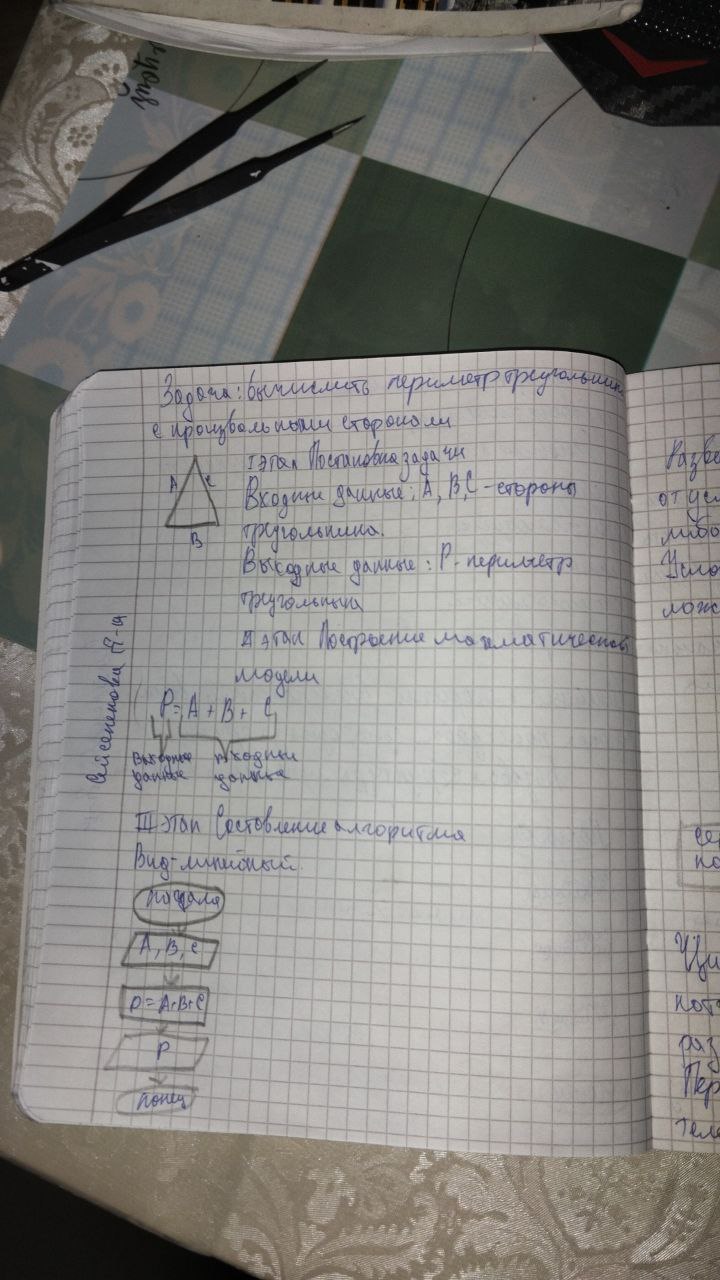 Задача: вычислить периметр треугольник
с произвольными сторонами
I этап Постановка задачи
A
C
B
Входные данные: A, B, C - стороны
треугольника.
Выходные данные: P - периметр
треугольника
II этап Построение математической
модели
P = A + B + C
выходные входные
данные данные
III этап Составление алгоритма
Вид - линейный.
начала
A, B, C
P = A+B+C
P
конец
Разве
от усл
либо
Усло
лож
Ци
пот
раз
Пер
теле